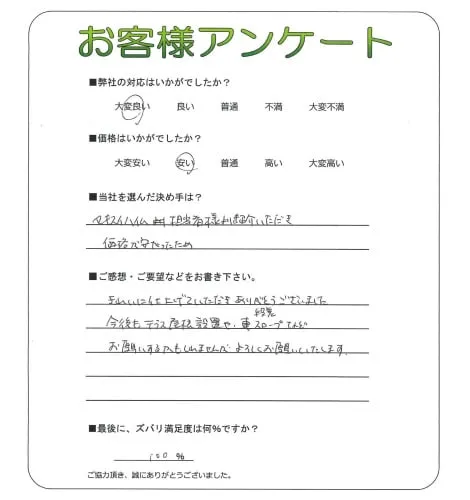 お客様アンケート
■弊社の対応はいかがでしたか?
大変良い 良い 普通 不満 大変不満
■価格はいかがでしたか?
大変安い 安い 普通 高い 大変高い
■当社を選んだ決め手は?
セキスイハイム 担当者様より紹介いただき
価格が安かったため
■ご感想・ご要望などをお書き下さい。
きれいに仕上げていただきありがとうございました
段差
今後もテラス屋根設置や、車スロープなどで
お願いするかもしれませんが よろしくお願いいたします。
■最後に、ズバリ満足度は何%ですか?
100 %
ご協力頂き、誠にありがとうございました。